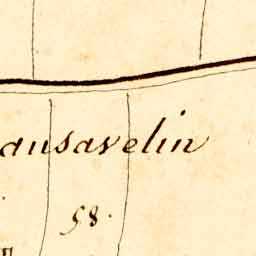 ausavelin
58.